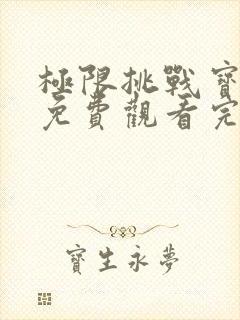 極限挑戰寶
免費觀看完
寶生永夢